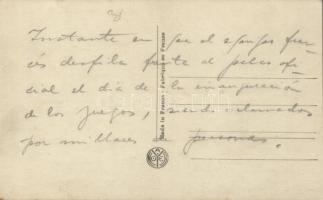 Instante en que el equipo fran-
cés desfila frente al palco ofi-
cial el día de la inauguración
de los juegos, siendo aclamados
por millares de personas.
Made in France - Fabriqué en France